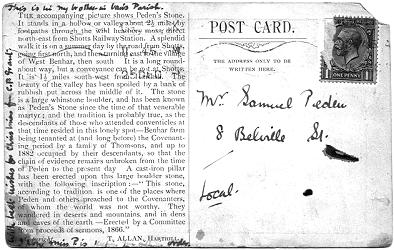 This is in my Mother's Parish.
THE accompanying picture shows Peden's Stone.
It stands in a hollow or valley about 2½ miles by
footpaths through the wild heathery moor, direct
north-east from Shotts Railway Station. A splendid
walk it is on a summer day by the road from Shotts,
going first north, and then turning east to the village
of West Benhar, then south. It is a long round-
about way, but a conveyance can be got at Shotts.
It is 1½ miles south-west from The
beauty of the valley has been spoiled by a bank of
rubbish put across the middle of it. The stone
is a large whinstone boulder, and has been known
as Peden's Stone since the time of that venerable
martyr; and the tradition is probably true, as the
descendants of those who attended conventicles at
that time resided in this lonely spot—Benhar farm
being tenanted at (and long before) the Covenant-
ing period by a family of Thomsons, and up to
1882 occupied by their descendants, so that the
chain of evidence remains unbroken from the time
of Peden to the present day. A cast-iron pillar
has been erected upon this large boulder stone,
with the following inscription:—"This stone,
according to tradition, is one of the places where
Peden and others preached to the Covenanters,
of whom the world was not worthy. They
wandered in deserts and mountains, and in dens
and caves of the earth.—Erected by a Committee
from proceeds of sermons, 1866."
T. ALLAN, HARTHILL.
POST CARD.
THE ADDRESS ONLY TO BE
WRITTEN HERE.
ONE PENNY
Mr. Samuel Peden
8 Belville St.
Local.